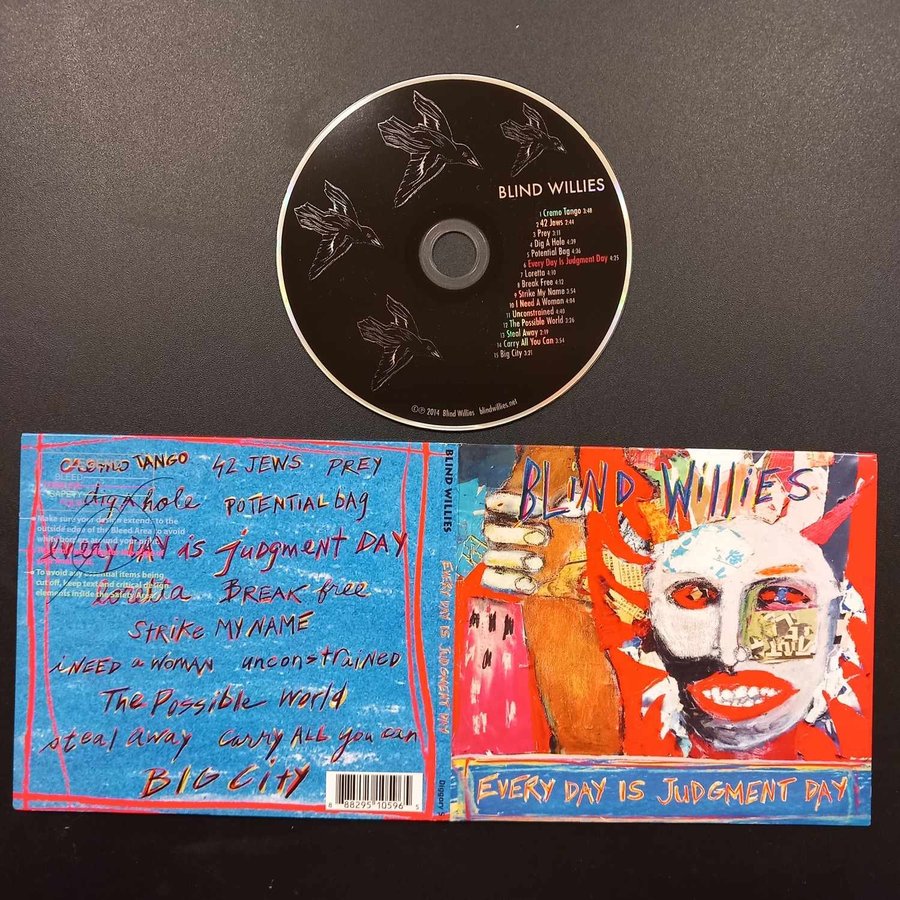 BLIND WILLIES
1 Cromo Tango 3:48
2 42 Jews 2:44
3 Prey 3:11
4 Dig A Hole 4:39
5 Potential Bag 4:36
6 Every Day Is Judgment Day 4:25
7 Loretta 4:10
8 Break Free 4:12
9 Strike My Name 3:54
10 I Need A Woman 4:04
11 Unconstrained 4:40
12 The Possible World 3:26
13 Steal Away 2:19
14 Carry All You Can 3:54
15 Big City 3:21
©℗ 2014 Blind Willies blindwillies.net
TANGO 42 JEWS PREY
BLEED
SAFETY
dig A hole POTENTIAL bag
• Make sure your design extends to the
outside edge of the Bleed Area to avoid
white borders around your
every DAY is judgment DAY
• To avoid any essential items being
cut off, keep text and critical design
elements inside the Safety Area
BREAK free
Strike MY NAME
i NEED a WOMAN unconstrained
The Possible World
steal away carry ALL you can
BIG CITY
8 88295 10596 5
BLIND WILLIES
EVERY DAY IS JUDGMENT DAY
BLIND WILLIES
EVERY DAY IS JUDGMENT DAY